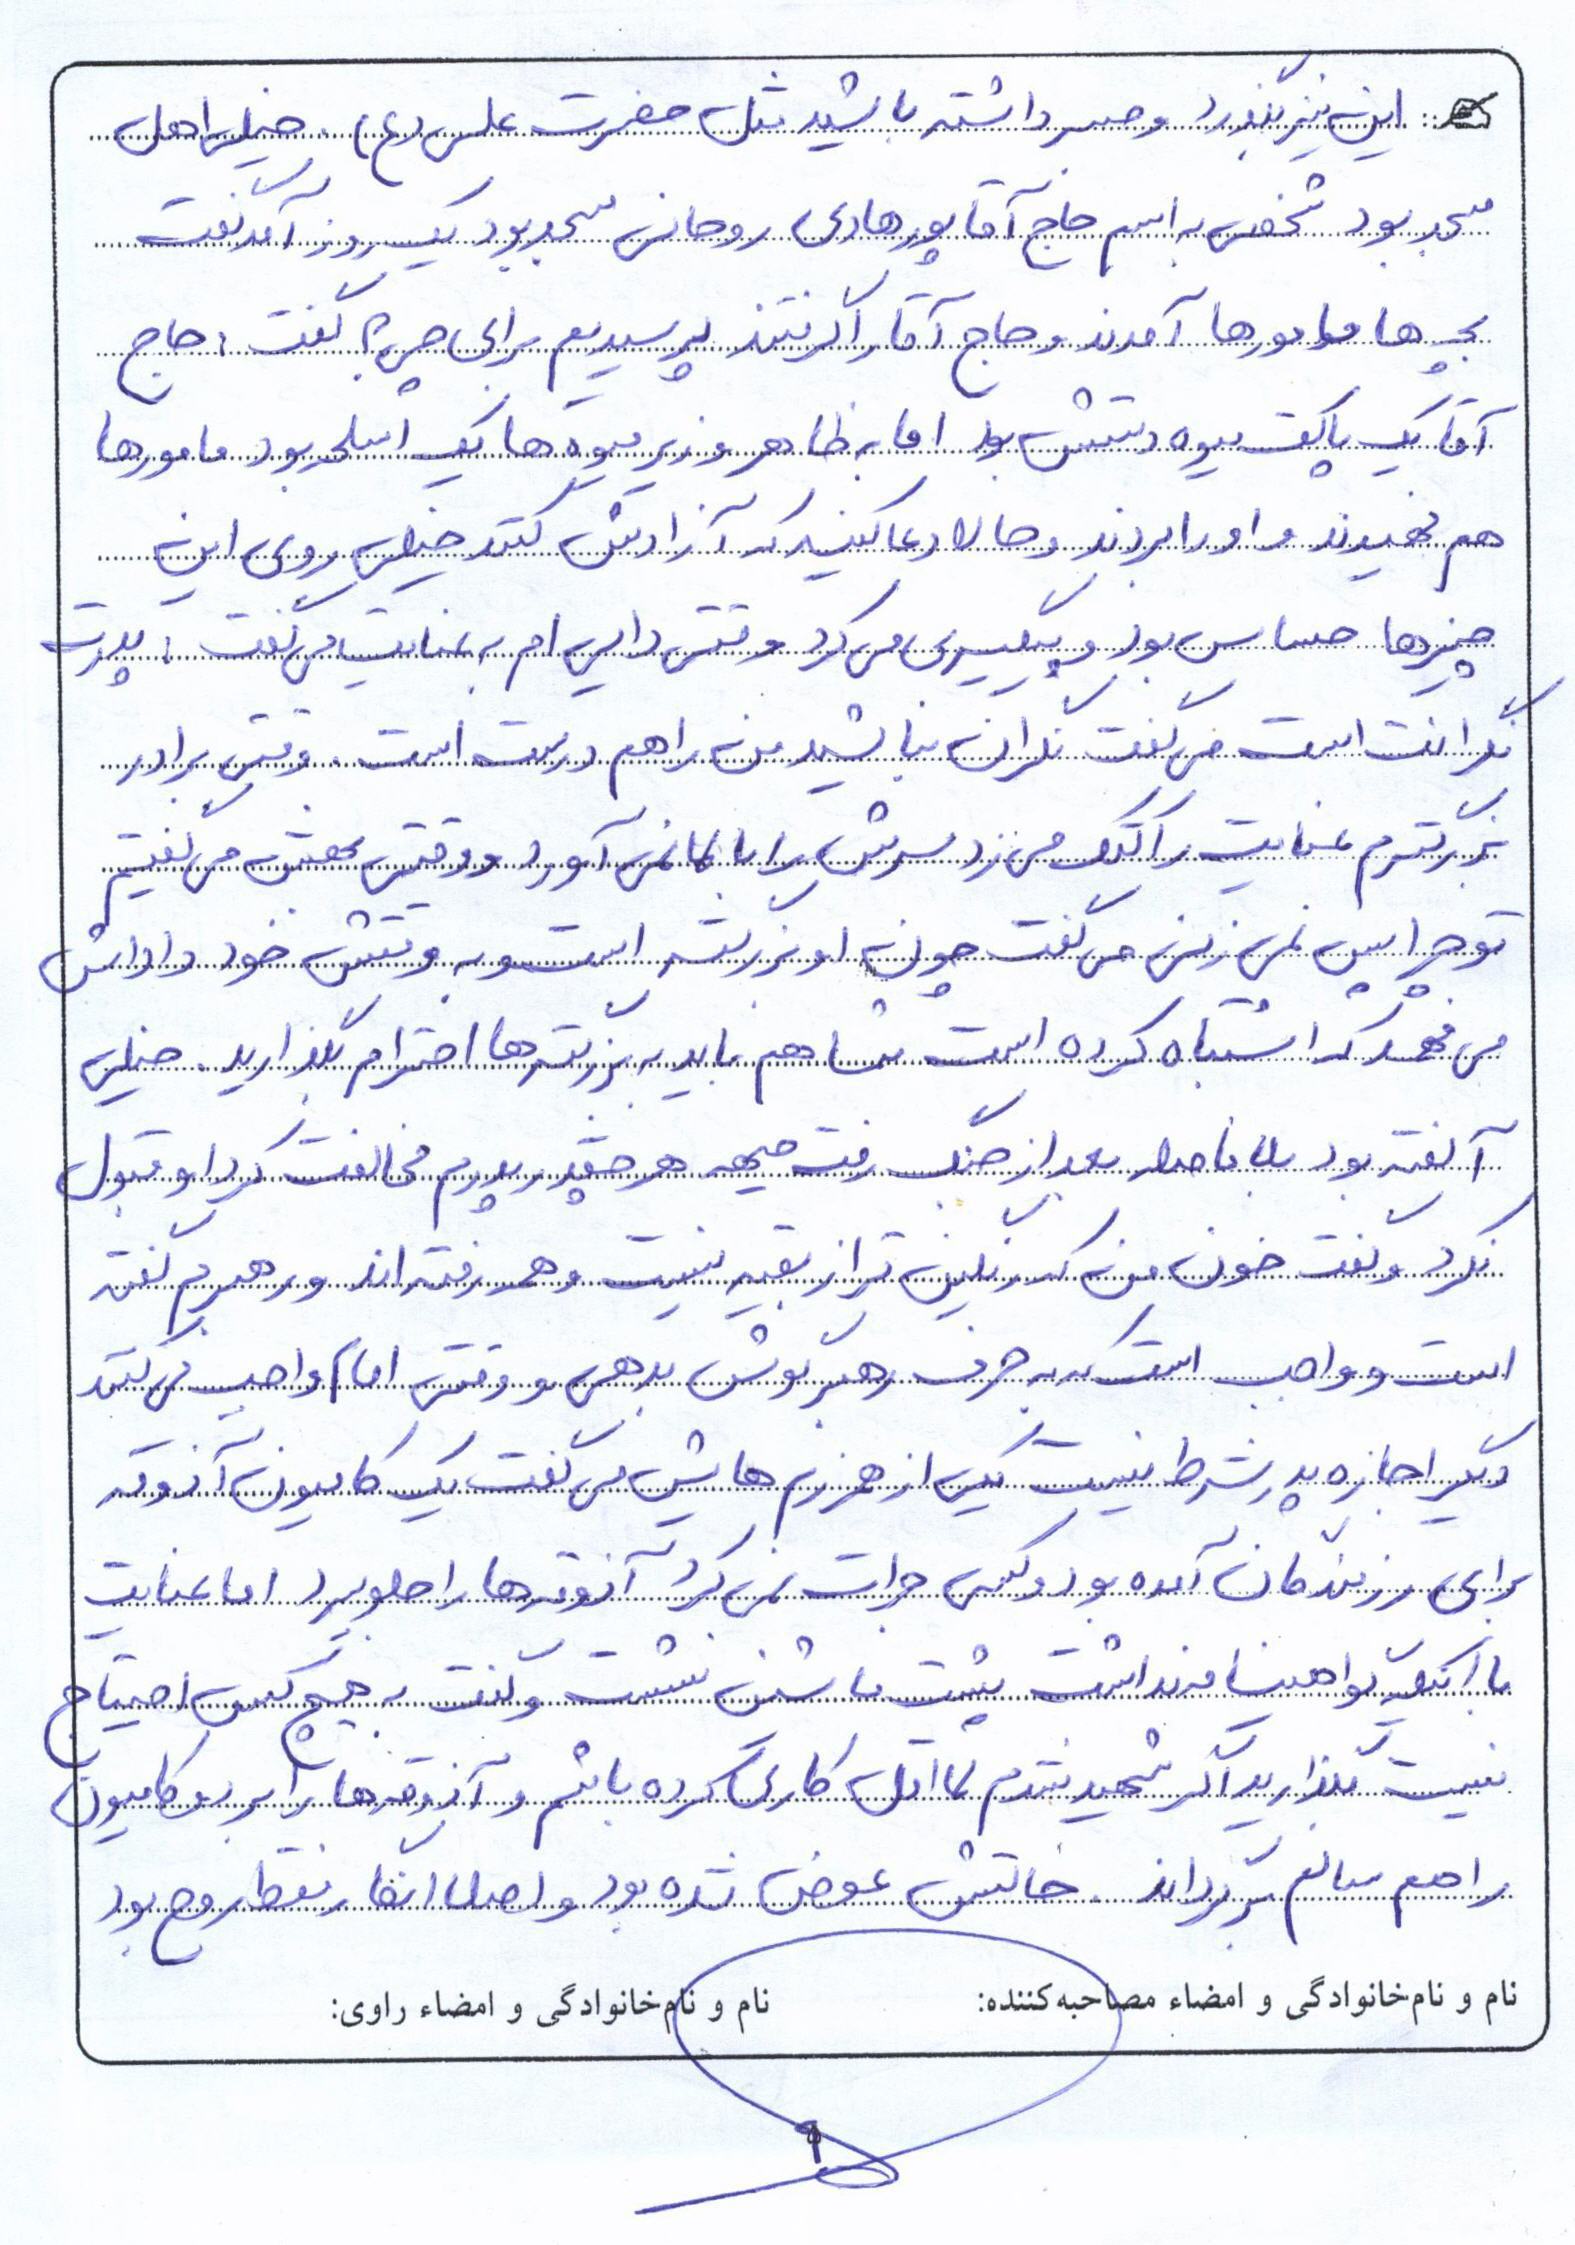 این نیز بگذرد و صبر داشته باشید مثل حضرت علی (ع). خیلی اهل
مسجد بود شخصی به اسم حاج آقا پورهادی روحانی مسجد بود یک روز آمد گفت
بچه ها مامورها آمدند و حاج آقا را گرفتند پرسیدیم برای چی؟ گفت: حاج
آقا یک پاکت میوه دستش بود اما به ظاهر و زیر میوه ها یک اسلحه بود مامورها
هم فهمیدند و او را بردند و حالا دعا کنید که آزادش کنند خیلی روی این
چیزها حساس بود و پیگیری می کرد وقتی دایی ام به عنایت می گفت: پدرت
نگرانت است می گفت نگران نباشید من راهم درست است. وقتی برادر
بزرگترم عنایت را کتک می زد سرش را بالا نمی آورد و وقتی بهش می گفتیم
تو چرا پس نمی زنی می گفت چون او بزرگتر است و به وقتش خود داداش
می فهمد که اشتباه کرده است شما هم باید به بزرگترها احترام بگذارید. خیلی
آ گفته بود بلافاصله بعد از جنگ رفت جبهه هر چقدر پدرم مخالفت کرد او قبول
نکرد و گفت خون من که رنگین تر از بقیه نیست و همه رفته اند و رهبرم گفته
است و واجب است که به حرف رهبر گوش بدهی و وقتی امام واجب می کند
دیگر اجازه پدر شرط نیست یکی از همرزم هایش می گفت یک کامیون آذوقه
برای رزمندگان آمده بود و کسی جرات نمی کرد آذوقه ها را جلو ببرد اما عنایت
با اینکه گواهینامه نداشت پشت ماشین نشست و گفت به هیچ کس احتیاج
نیست بگذارید اگر شهید شدم لااقل کاری کرده باشم و آذوقه ها را برد و کامیون
را هم سالم برگرداند. حالتش عوض شده بود و اصلا انگار فقط روح بود
نام و نام‌خانوادگی و امضاء مصاحبه‌کننده: نام و نام‌خانوادگی و امضاء راوی: